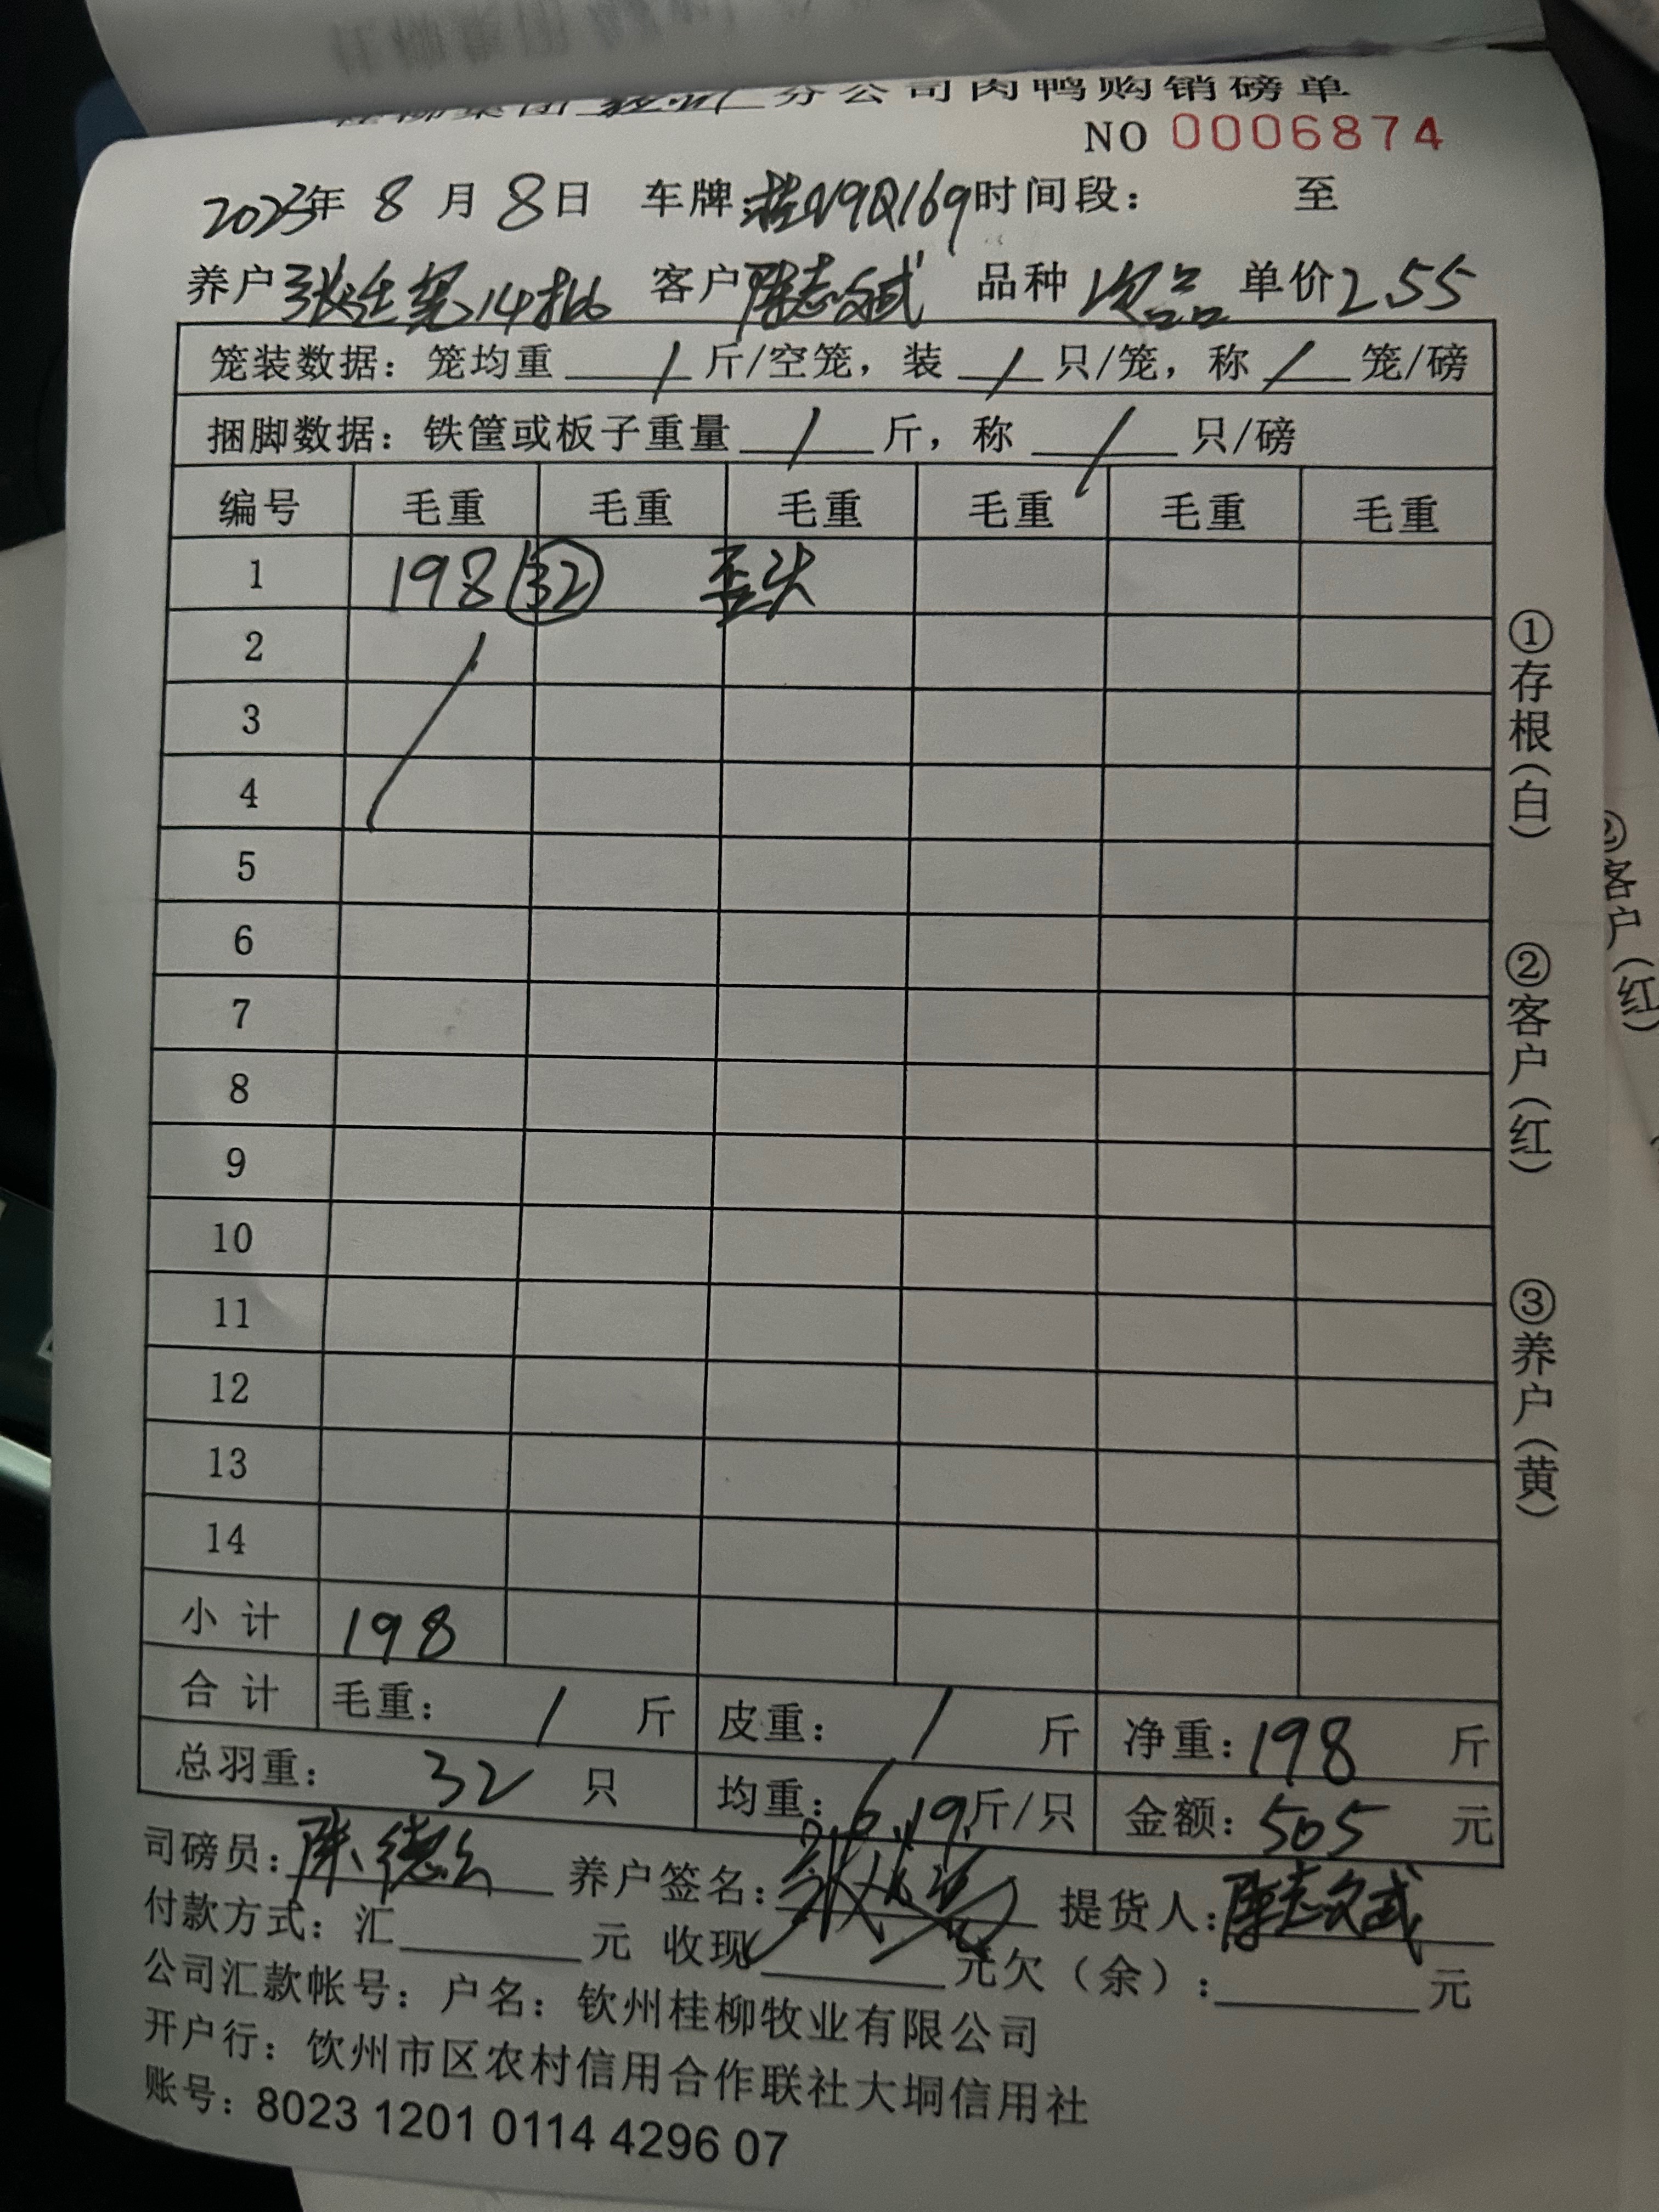 分公司肉鸭购销磅单
NO 0006874
2023年 8 月 8 日 车牌:桂N9Q169 时间段: 至
养户 14批 客户 陈志斌 品种 次品 单价 2.55
笼装数据: 笼均重 / 斤/空笼, 装 / 只/笼, 称 / 笼/磅
捆脚数据: 铁筐或板子重量 / 斤, 称 / 只/磅
编号 毛重 毛重 毛重 毛重 毛重 毛重
1 198 (32) 歪头
2
3
4
5
6
7
8
9
10
11
12
13
14
小计 198
合计 毛重: / 斤 皮重: / 斤 净重: 198 斤
总羽重: 32 只 均重: 6.19 斤/只 金额: 505 元
司磅员: 养户签名: 提货人: 陈志斌
付款方式: 汇 元 收现 元欠(余): 元
公司汇款帐号: 户名: 钦州桂柳牧业有限公司
开户行: 钦州市区农村信用合作联社大垌信用社
账号: 8023 1201 0114 4296 07
①存根(白)
②客户(红)
③养户(黄)
客户(红)